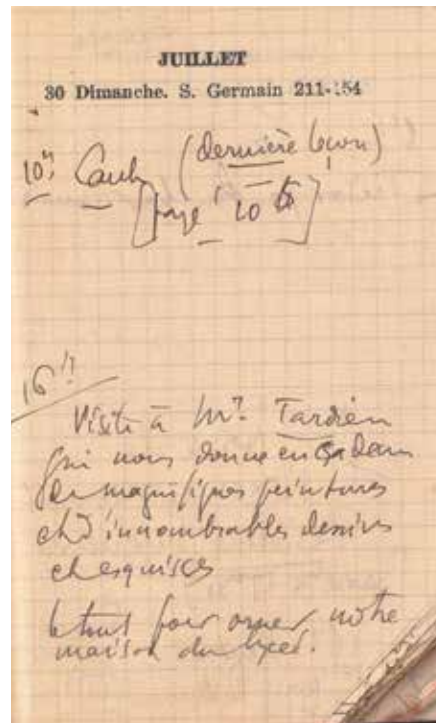 JUILLET
30 Dimanche. S. Germain 211-154
10h (dernière leçon)
[page 105]
16h
Visite à Mr. Tardieu
qui nous donne en cadeau
de magnifiques peintures
et d'innombrables dessins
et esquisses
le tout pour orner notre
maison du lycée.